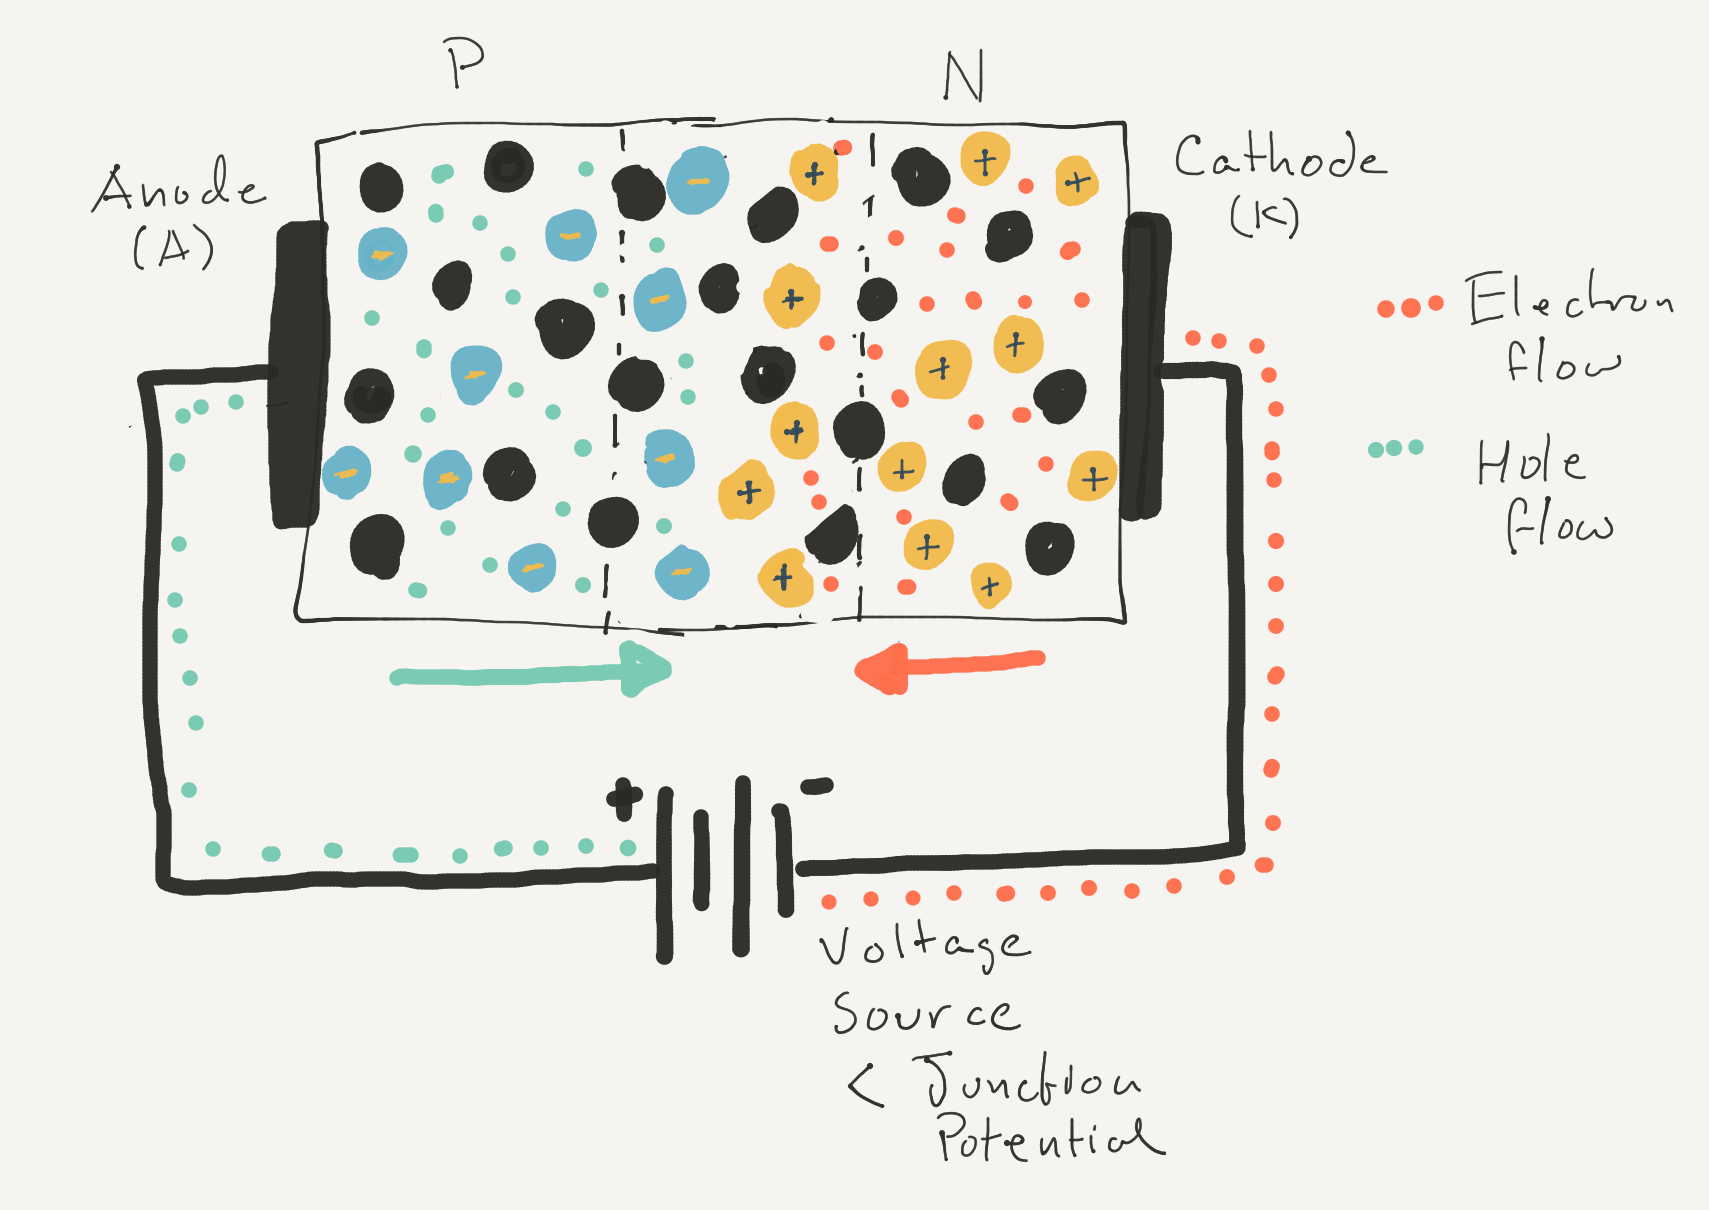 P
N
Anode
(A)
Cathode
(K)
Electron
flow
Hole
flow
+ -
Voltage
Source
< Junction
Potential